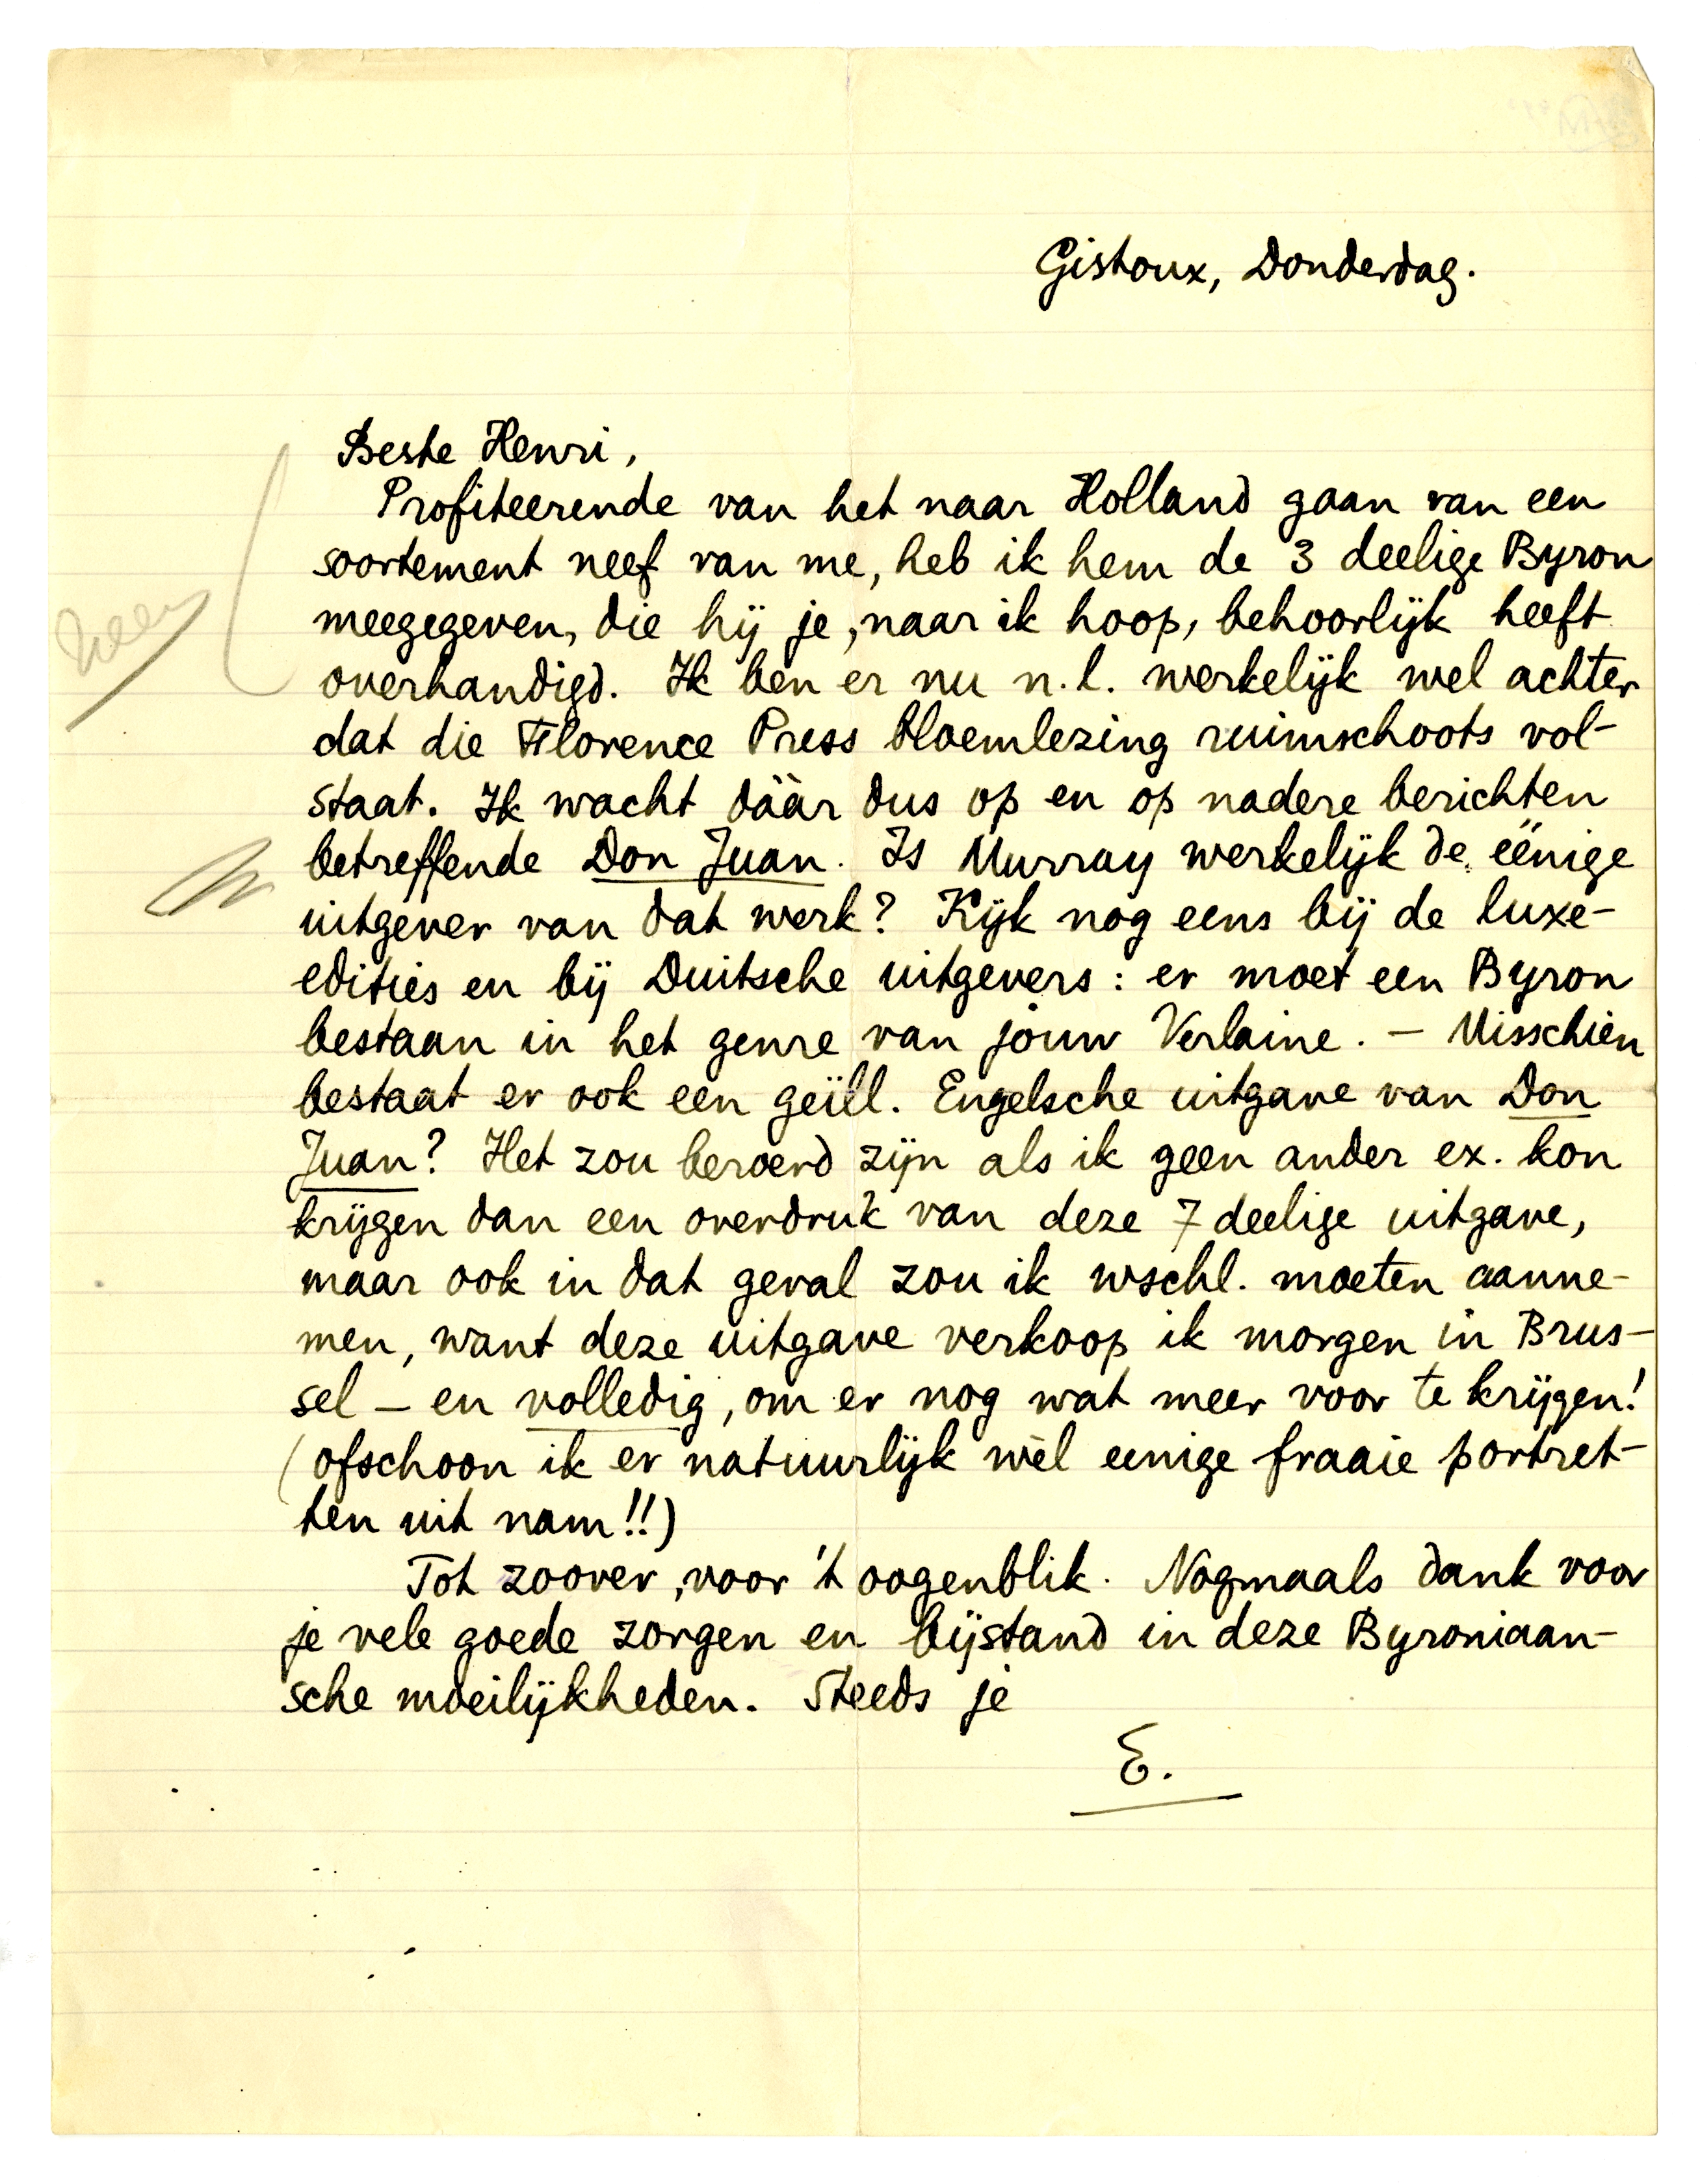 Gistoux, Donderdag.
Beste Henri,
Profiteerende van het naar Holland gaan van een
soortement neef van me, heb ik hem de 3 deelige Byron
meegegeven, die hij je, naar ik hoop, behoorlijk heeft
overhandigd. Ik ben er nu n.l. werkelijk wel achter
dat die Florence Press bloemlezing ruimschoots vol-
staat. Ik wacht dààr dus op en op nadere berichten
betreffende Don Juan. Is Murray werkelijk de éénige
uitgever van dat werk? Kijk nog eens bij de luxe-
edities en bij Duitsche uitgevers: er moet een Byron
bestaan in het genre van jouw Verlaine. – Misschien
bestaat er ook een geïll. Engelsche uitgave van Don
Juan? Het zou beroerd zijn als ik geen ander ex. kon
krijgen dan een overdruk van deze 7 deelige uitgave,
maar ook in dat geval zou ik wschl. moeten aanne-
men, want deze uitgave verkoop ik morgen in Brus-
sel – en volledig, om er nog wat meer voor te krijgen!
(ofschoon ik er natuurlijk wèl eenige fraaie portret-
ten uit nam!!)
Tot zoover, voor 't oogenblik. Nogmaals dank voor
je vele goede zorgen en bijstand in deze Byroniaan-
sche moeilijkheden. Steeds je
E.